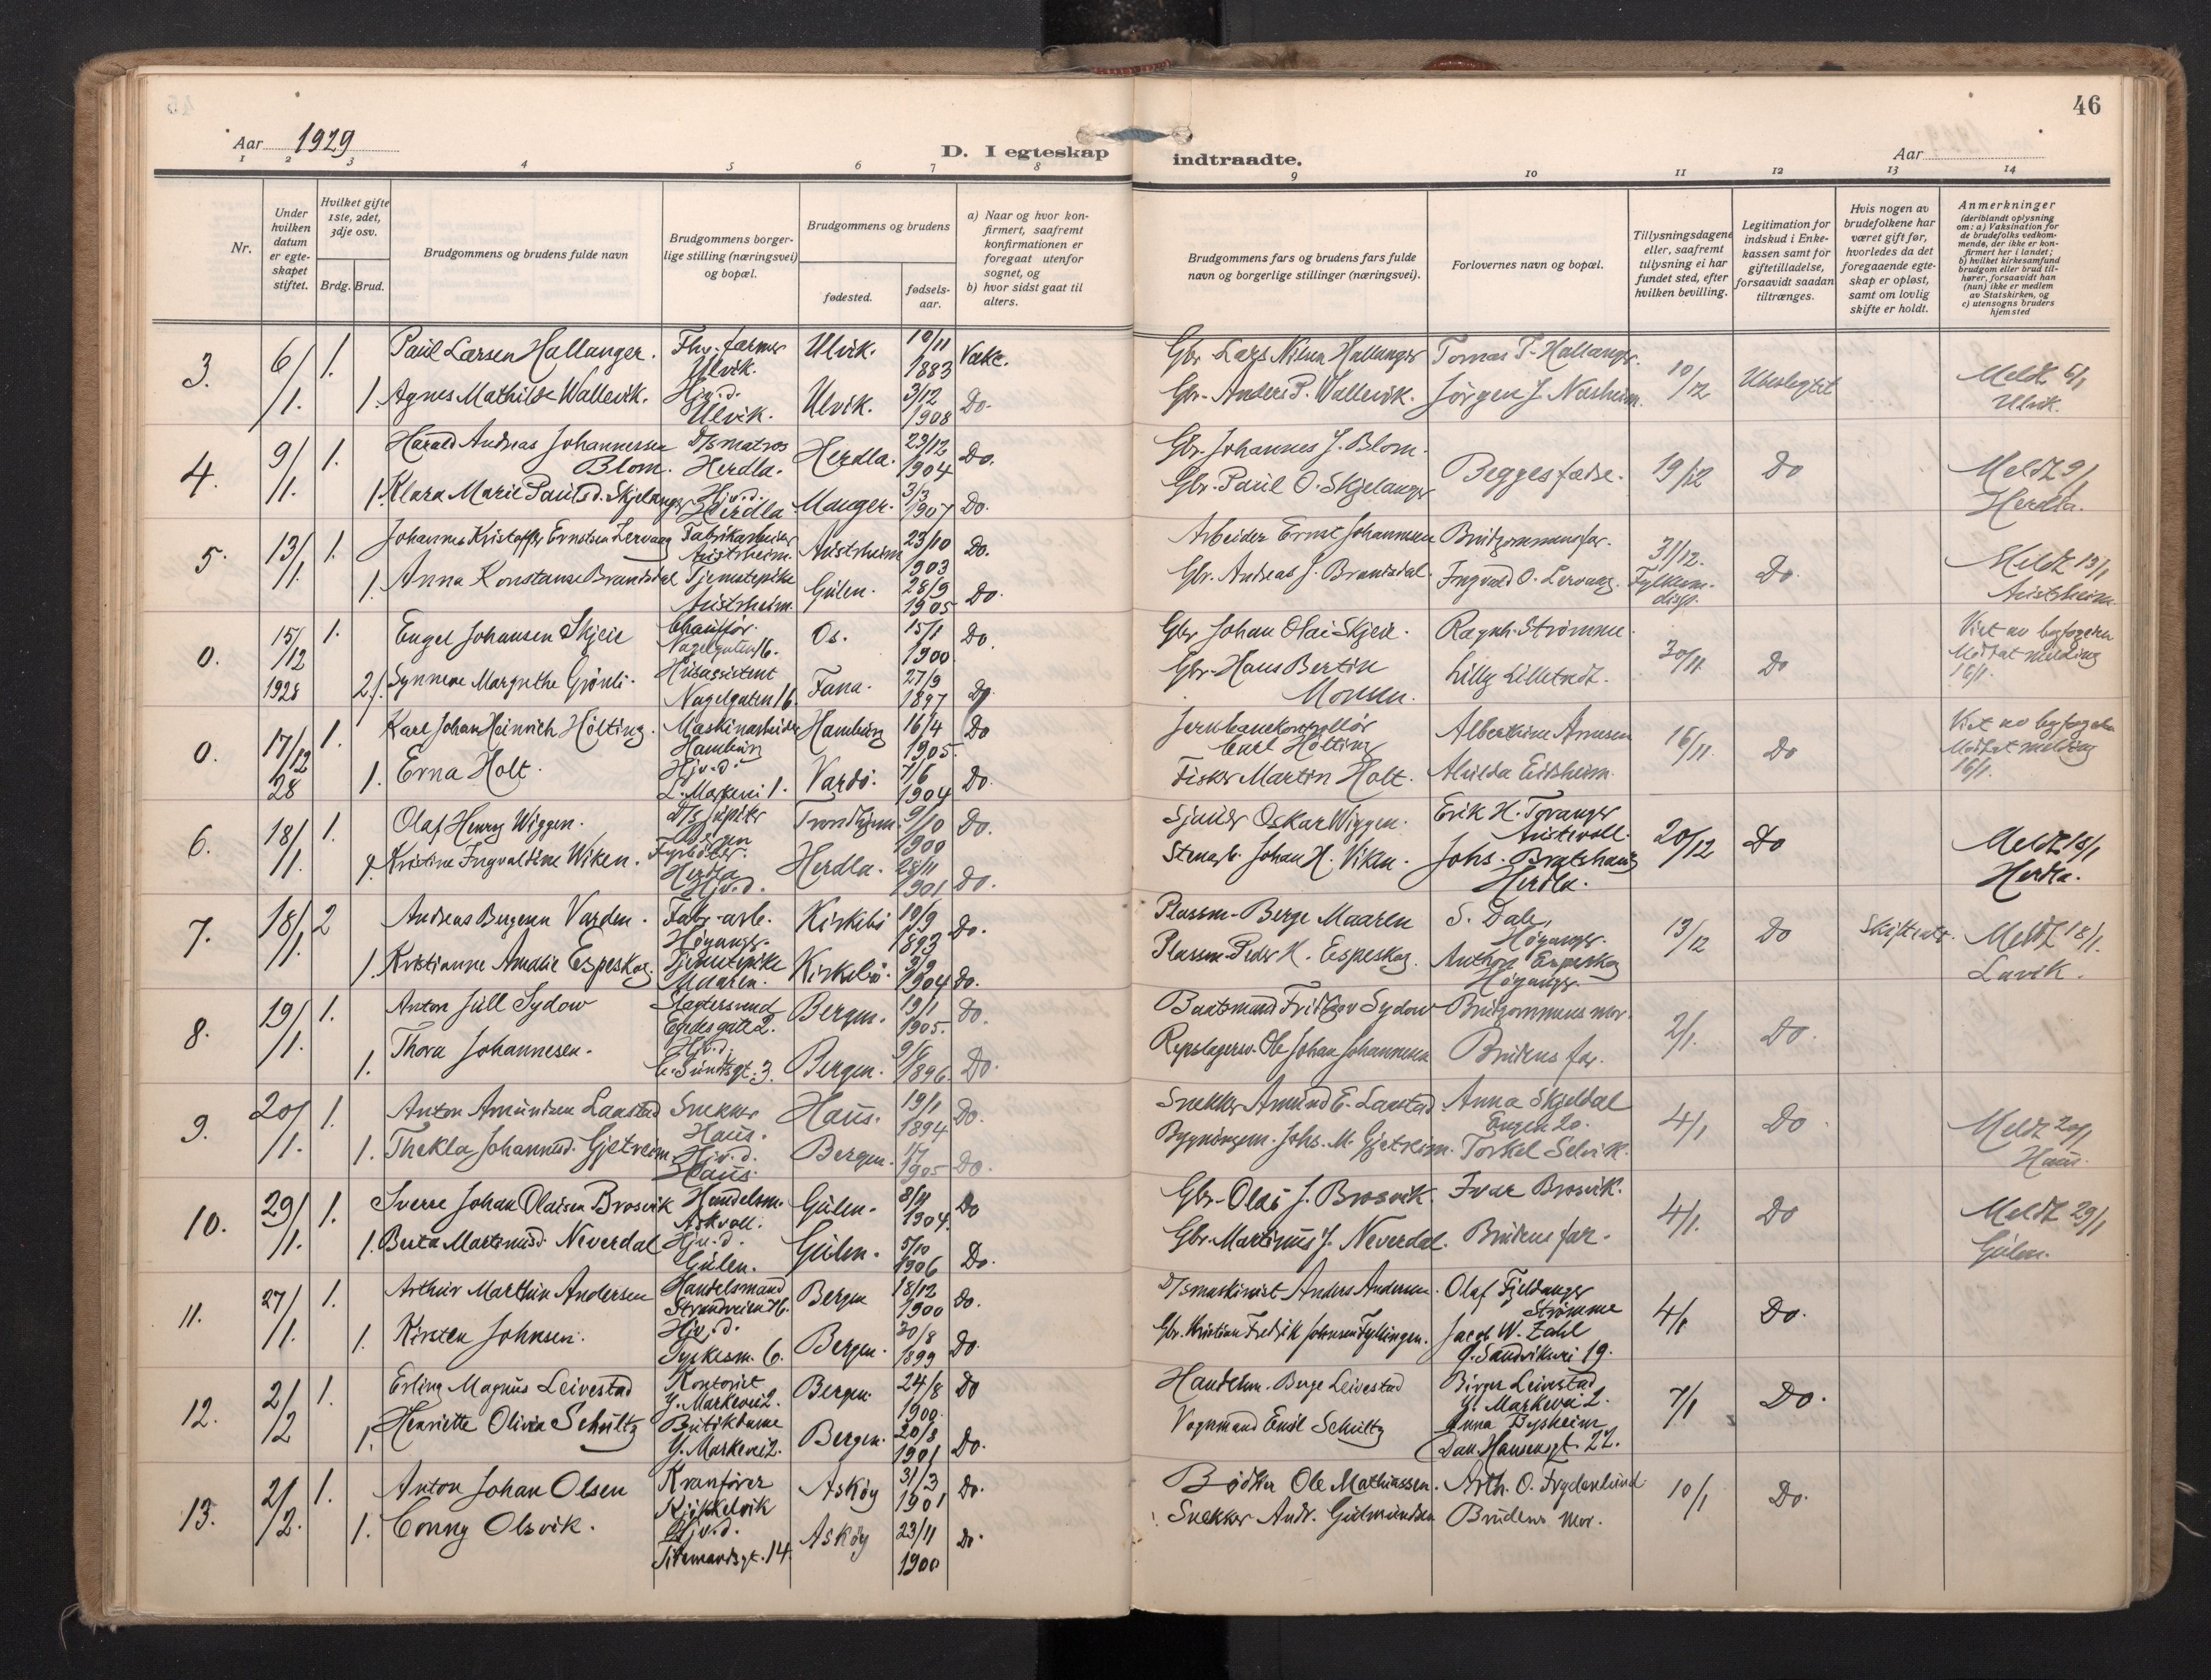 46
Aar 1929
D. I egteskap indtraadte.
Aar
1 2 3 4 5 6 7 8 9 10 11 12 13 14
Nr.
Under hvilken datum er egteskapet stiftet.
Hvilket gifte 1ste, 2det, 3dje osv.
Brdg. Brud.
Brudgommens og brudens fulde navn
Brudgommens borgerlige stilling (næringsvei) og bopæl.
Brudgommens og brudens
fødested.
fødselsaar.
a) Naar og hvor konfirmert, saafremt konfirmationen er foregaat utenfor sognet, og
b) hvor sidst gaat til alters.
Brudgommens fars og brudens fars fulde navn og borgerlige stillinger (næringsvei).
Forlovernes navn og bopæl.
Tillysningsdagene eller, saafremt tillysning ei har fundet sted, efter hvilken bevilling.
Legitimation for indskud i Enkekassen samt for giftetilladelse, forsaavidt saadan tiltrænges.
Hvis nogen av brudefolkene har været gift før, hvorledes da det foregaaende egteskap er opløst, samt om lovlig skifte er holdt.
Anmerkninger (deriblandt oplysning om: a) Vaksination for de brudefolks vedkommende, der ikke er konfirmert her i landet; b) hvilket kirkesamfund brudgom eller brud tilhører, forsaavidt han (hun) ikke er medlem av Statskirken, og c) utensogns bruders hjemsted
3. 6/1. 1. Paul Larsen Hallanger. Fhv. farmer Ulvik. Ulvik. 10/11 1883 Vakc. Gbr. Lars Nilsen Hallanger Tomas T. Hallanger. 10/12 Ubeslegtet Meldt 6/1 Ulvik.
1. Agnes Mathilde Wallevik. Hjv.d. Ulvik. Ulvik. 3/12 1908 Do. Gbr. Anders P. Wallevik. Jørgen J. Nesheim.
4. 9/1. 1. Harald Andreas Johannessen Blom. D/s matros Herdla. Herdla. 23/12 1904 Do. Gbr. Johannes J. Blom. Begges fædre. 19/12 Do Meldt 9/1 Herdla.
1. Klara Marie Paulsd. Skjelanger Hjv.d. Herdla Manger. 3/3 1907 Do. Gbr. Paul O. Skjelanger
5. 13/1. 1. Johannes Kristoffer Ernstsen Lervaag Fabrikarbeider Austrheim. Austrheim 23/10 1903 Do. Arbeider Ernst Johannesen Brudgommens far. 31/12. Fylkem. disp. Do. Meldt 13/1 Austrheim.
1. Anna Konstanse Brandsdal Tjenestepike Austrheim. Gulen. 28/9 1905 Do. Gbr. Andreas J. Brandsdal. Ingvald O. Lervaag.
0. 15/12 1928 1. Engel Johansen Skjeie Chauffør. Nagelgaten 16. Os. 15/1 1900. Do Gbr Johan Olai Skjeie. Ragnh. Strømme. 30/11. Do Viet av byfogden Motat melding 16/1.
2. Synneve Margrethe Grönli. Husassistent Nagelgaten 16. Fana. 27/9 1897 Do Gbr. Hans Bertin Monsen. Lilly Lilletredt.
0. 17/12 28 1. Karl Johan Heinrich Hölting. Maskinarbeider Hamburg Hamburg 16/4 1905. Do Jernbanekontrollör Carl Hölting Albertine Arnesen 16/11. Do Viet av byfogden Motat melding 16/1.
1. Erna Holt. Hjv.d. L. Markevei 1. Vardö. 7/6 1904 Do. Fisker Martin Holt. Alvilda Eidsheim.
6. 18/1. 1. Olaf Henry Wiggen. D/s Jupiter Bergen Fyrböter. Trondhjem. 9/10 1900 Do. Sjømand Oskar Wiggen. Erik H. Toranger Austevoll. 20/12 Do Meldt 18/1 Herdla.
1. Kristine Ingvaldine Wiken. Herdla Hjv.d. Herdla. 28/11 1901 Do. Stenarb. Johan H. Viken. Johs. Bratshaug Herdla.
7. 18/1. 2 Andreas Bergesen Varden. Fabr.-arb. Höyanger. Kirkebö 19/9 1893 Do. Plassm. Berge Maaren S. Dale, Höyanger. 13/12 Do Skifteatt. Meldt 18/1. Lavik.
1. Kristianne Amalie Espeskog. Tjenestepike Maaren. Kirkebö. 3/9 1904 Do. Plassm. Peder H. Espeskog. Anthon Espeskog Höyanger.
8. 19/1. 1. Anton Jull Sydow Slagtersvend Endregate 2. Bergen. 19/1 1905. Do. Baatsmand Fridtjov Sydow Brudgommens mor. 2/1. Do.
1. Thora Johannesen. Hjv.d. C. Sundtsgt. 3. Bergen. 9/6 1896 Do. Repslagersv. Ole Johan Johannesen Brudens far.
9. 20/1. 1. Anton Amundsen Laastad Snekker Haus. Haus. 19/1 1894 Do. Snekker Amund E. Laastad. Anna Skjeldal Engen 20. 4/1 Do. Meldt 20/1 Haus.
1. Thekla Johannesd. Gjetreim. Hjv.d. Haus. Bergen. 1905 Do. Bygningsm. Johs. M. Gjetreim. Torkel Selvik.
10. 29/1. 1. Sverre Johan Olaisen Brosvik Handelsm. Askvoll. Gulen. 8/11 1904. Do Gbr. Olai J. Brosvik. Ivar Brosvik. 4/1. Do Meldt 29/1 Gulen.
1. Berta Martinusd. Neverdal Hjv.d. Gulen. Gulen. 5/10 1906 Do. Gbr. Martinus J. Neverdal. Brudens far.
11. 27/1. 1. Arthur Marthin Andersen Handelsmand Strandveien 76. Bergen 18/12 1900 Do. D/smaskinist Anders Andersen. Olaf Fjeldanger Strømme 4/1 Do.
1. Kirsten Johnsen. Hjv.d. Dyrkesm. 6. Bergen. 30/8 1899 Do. Gbr. Kristian Fredrik Johnsen Fyllingen. Jacob W. Zahl G. Sandviksvei 19.
12. 2/2 1. Erling Magnus Leivestad Kontorist Y. Markevei 2. Bergen. 24/8 1900. Do Handelsm. Berge Leivestad Birger Leivestad Y. Markevei 2. 7/1 Do.
1. Henriette Olivia Schultz Butikdame Y. Markevei 2. Bergen. 20/8 1901 Do. Vognmand Emil Schultz Anna Bysheim Dan. Hansensgt. 22.
13. 2/2. 1. Anton Johan Olsen Kranfører Kjøkkelvik Askøy 31/3 1901 Do. Bødker Ole Mathiassen. Arth. O. Frydenlund 10/1 Do.
1. Conny Olsvik. Hjv.d. Tidemandsgt. 14. Askøy 23/11 1900 Do. Snekker Andr. Gulmundsen Brudens mor.